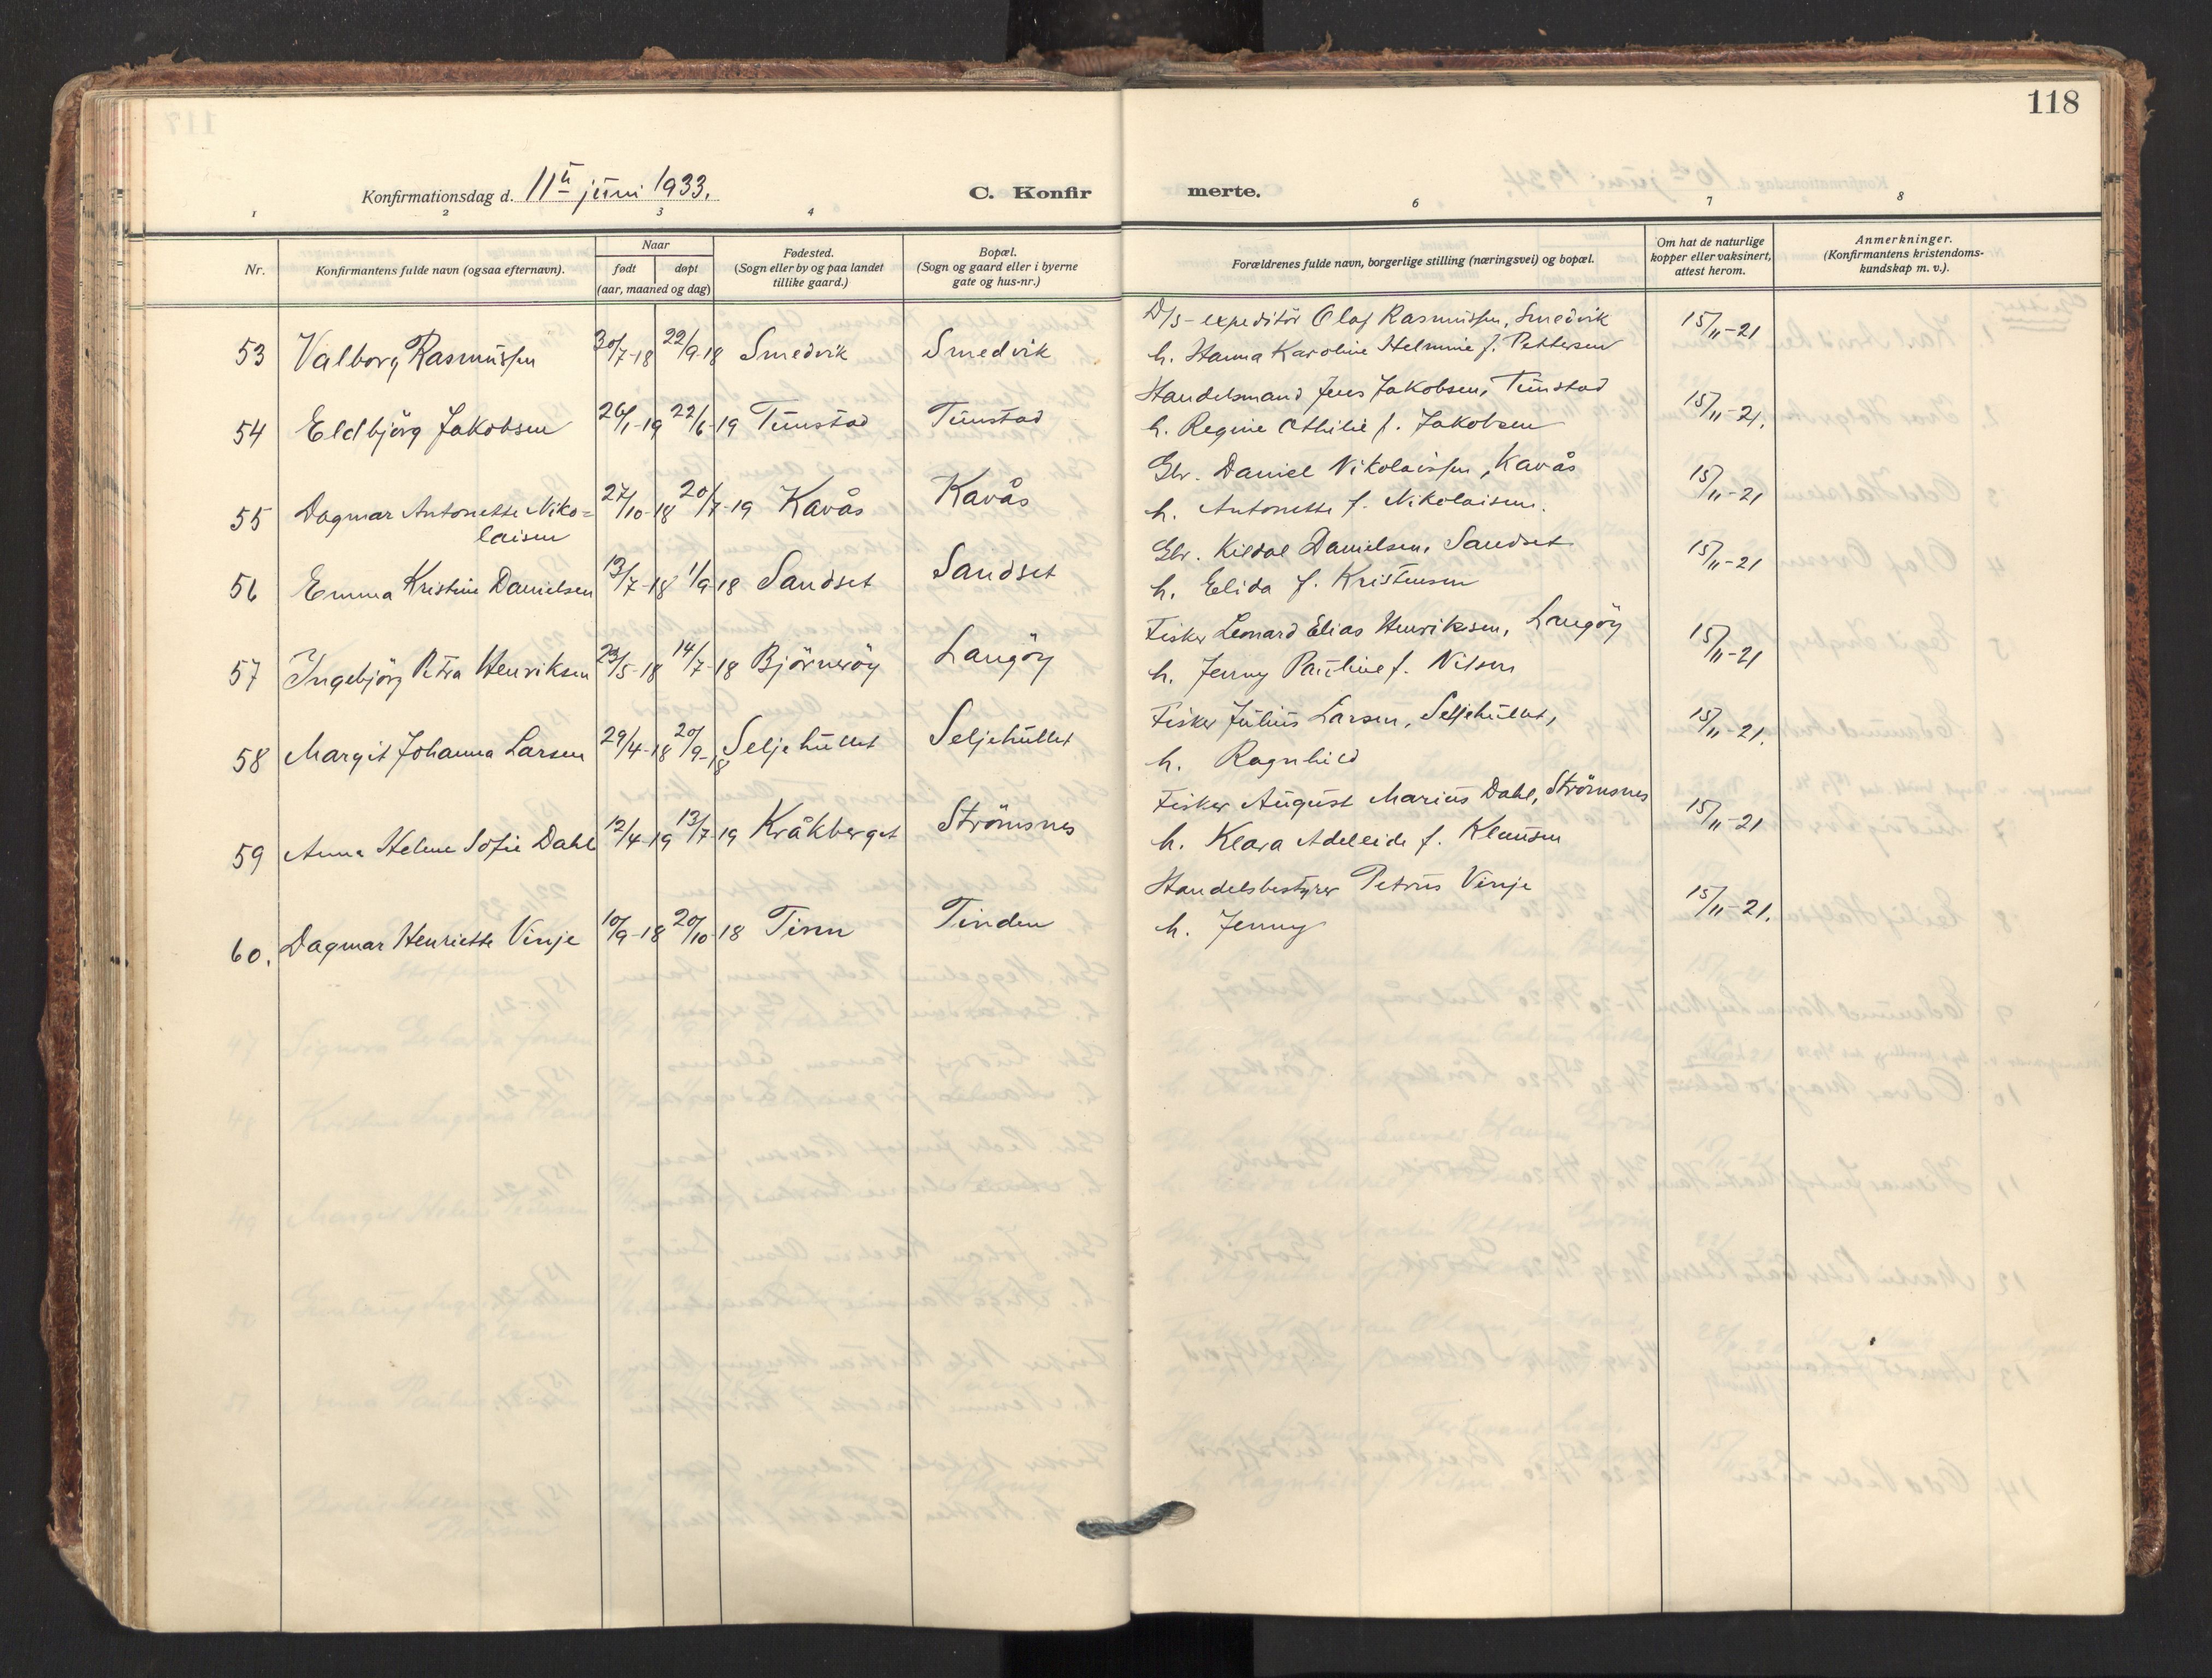 118
Konfirmationsdag d. 11te juni 1933.
C. Konfirmerte.
1 2 3 4 6 7 8
Nr.
Konfirmantens fulde navn (ogsaa efternavn).
Naar
født døpt
(aar, maaned og dag)
Fødested.
(Sogn eller by og paa landet
tillike gaard.)
Bopæl.
(Sogn og gaard eller i byerne
gate og hus-nr.)
Forældrenes fulde navn, borgerlige stilling (næringsvei) og bopæl.
Om hat de naturlige
kopper eller vaksinert,
attest herom.
Anmerkninger.
(Konfirmantens kristendoms-
kundskap m. v.).
53 Valborg Rasmussen 30/7-18 22/9-18 Smedvik Smedvik
D/S-expeditör Olaf Rasmussen, Smedvik
h. Hanna Karoline Helmine f. Pettersen
15/11-21
54 Eldbjörg Jakobsen 26/1-19 22/6-19 Tunstad Tunstad
Handelsmand Jens Jakobsen, Tunstad
h. Regine Othilie f. Jakobsen
15/11-21.
55 Dagmar Antonette Niko=
laisen
27/10-18 20/7-19 Kavås Kavås
Gbr. Daniel Nikolaissen, Kavås
h. Antonette f. Nikolaisen.
15/11-21
56 Emma Kristine Danielsen 13/7-18 1/9-18 Sandset Sandset
Gbr. Kildal Danielsen, Sandset
h. Elida f. Kristensen
15/11-21
57 Ingebjörg Petra Henriksen 23/5-18 14/7-18 Björneröy Langöy
Fisker Leonard Elias Henriksen, Langöy
h. Jenny Pauline f. Nilsen
15/11-21
58 Margit Johanna Larsen 29/4-18 20/9-18 Seljehullet Seljehullet
Fisker Julius Larsen, Seljehullet,
h. Ragnhild
15/11-21.
59 Anna Helene Sofie Dahl 12/4-19 13/7-19 Kråkberget Strömsnes
Fisker August Marius Dahl, Strömsnes
h. Klara Adeleide f. Klausen
15/11-21
60. Dagmar Henriette Vinje 10/9-18 20/10-18 Tinn Tinden
Handelsbestyrer Petrus Vinje
h. Jenny
15/11-21.